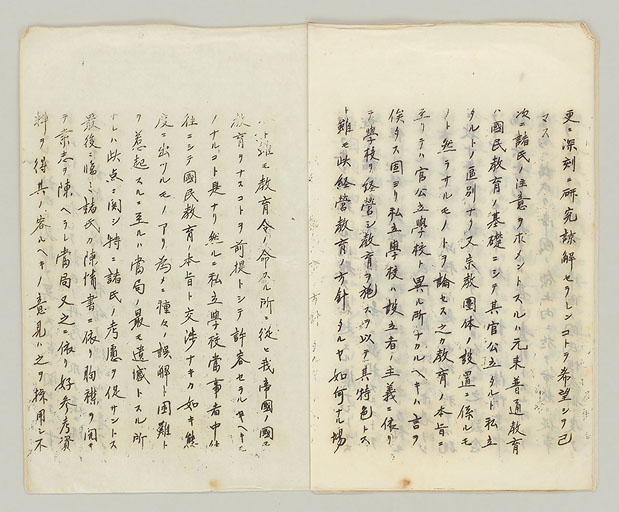 更ニ深刻ニ研究諒解セラレンコトヲ希望シテ已
マス
次ニ諸氏ノ注意ヲ求メントスルハ元来普通教育
ハ國民教育ノ基礎ニシテ其官公立タルト私立
タルトノ區別ナク又宗教團体ノ設置ニ係ルモ
ノト然ラサルモノトヲ論セス之カ教育ノ本旨ニ
至リテハ官公立學校ト異ル所ナカルヘキハ言ヲ
俟タス固ヨリ私立學校ハ設立者ノ主義ニ依リ
テ學校ヲ経營シ教育ヲ施スヲ以テ其特色トス
ト雖モ此経營教育ノ方針タルヤ如何ナル場
ト雖モ教育令ノ命スル所ニ従ヒ我帝國ノ國民
教育ヲナスコトヲ前提トシテ許容セラルヘキモ
ノナルコト是ナリ然ルニ私立學校當事者中ニ
往ニシテ國民教育ノ本旨ト交渉ナキカ如キ態
度ニ出ツルモノアリ為メニ種々ノ誤解ト困難ト
ヲ惹起スルニ至ルハ當局ノ最モ遺憾トスル所
ナレハ此点ニ関シ特ニ諸氏ノ考慮ヲ促サントス
最後ニ臨ミ諸氏カ陳情書ニ依リ胸襟ヲ開キ
テ素志ヲ陳ヘラレ當局又之ニ依リ好参考資
料ヲ得其ノ容ルヘキノ意見ハ之ヲ採用シ不